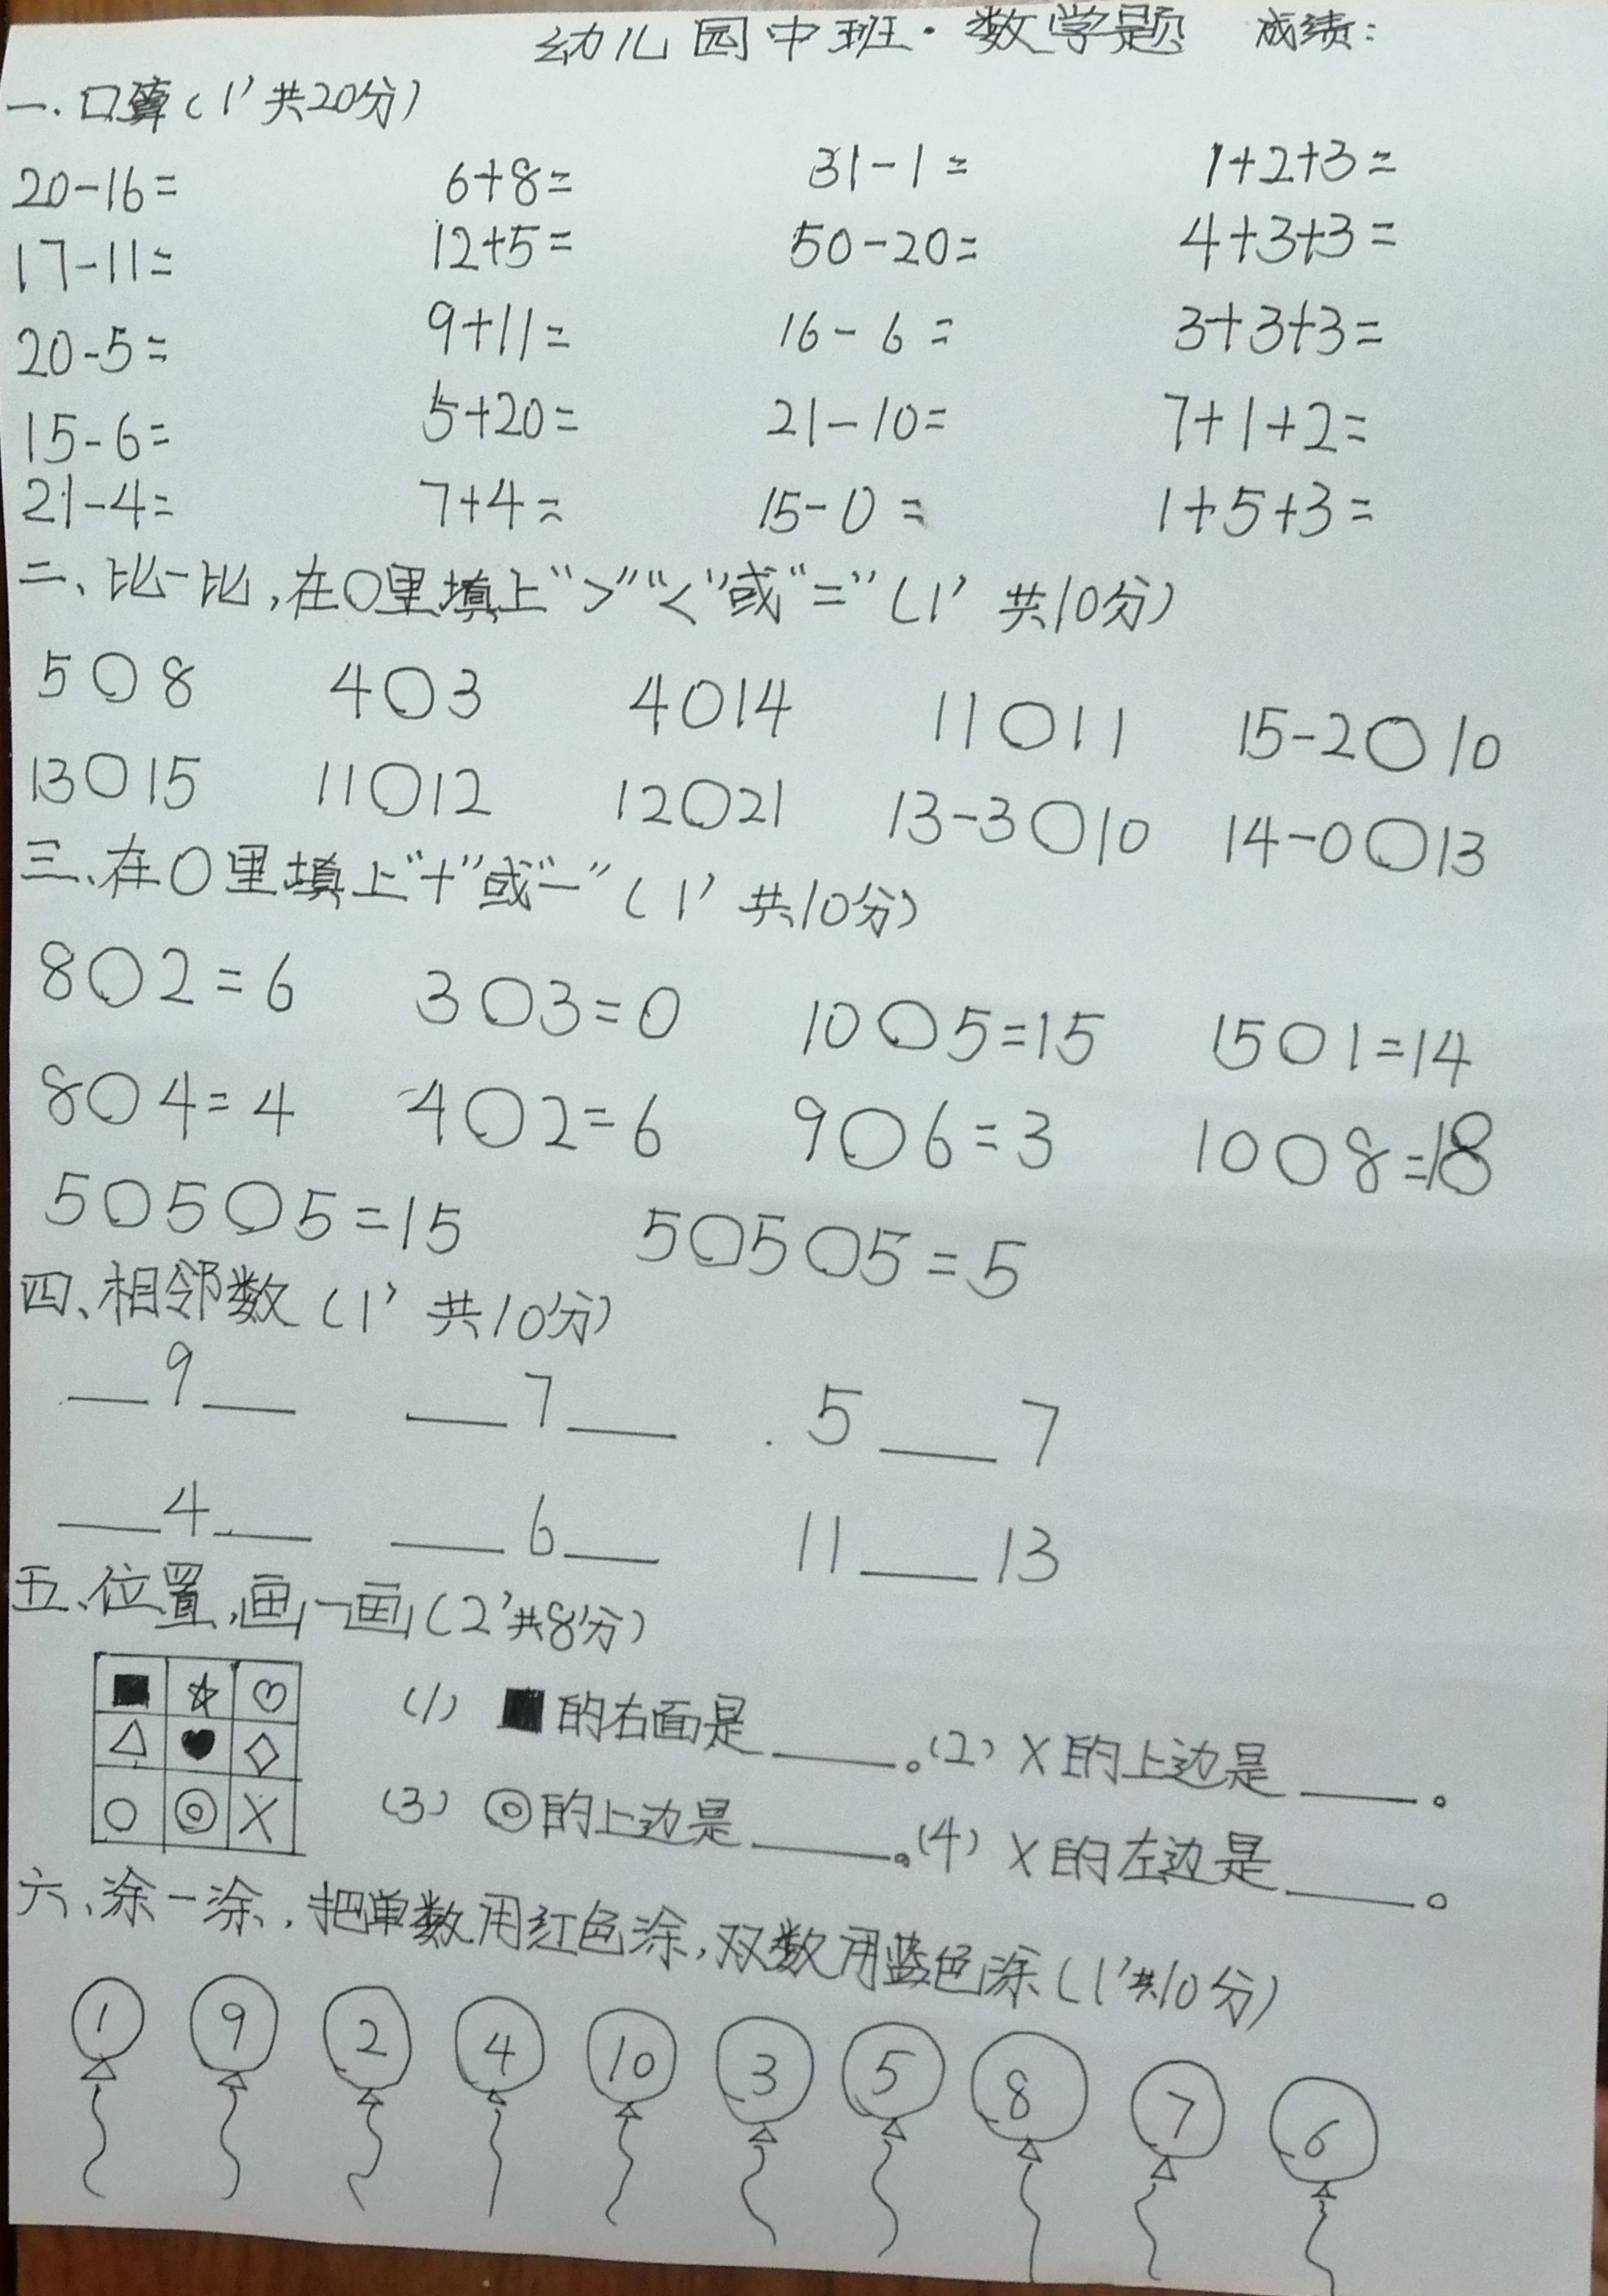 幼儿园中班·数学题 成绩:
一.口算(1' 共20分)
20-16= 6+8= 31-1= 1+2+3=
17-11= 12+5= 50-20= 4+3+3=
20-5= 9+11= 16-6= 3+3+3=
15-6= 5+20= 21-10= 7+1+2=
21-4= 7+4= 15-0= 1+5+3=
二、比一比,在○里填上“>”“<”或“=”(1' 共10分)
5○8 4○3 4○14 11○11 15-2○10
13○15 11○12 12○21 13-3○10 14-0○13
三、在○里填上“+”或“-”(1' 共10分)
8○2=6 3○3=0 10○5=15 15○1=14
8○4=4 4○2=6 9○6=3 10○8=18
5○5○5=15 5○5○5=5
四、相邻数(1' 共10分)
__9__ __7__ 5__7
__4__ __6__ 11__13
五、位置,画一画(2'共8分)
(1) ■的右面是____。(2) X的上边是____。
(3) ◎的上边是____。(4) X的左边是____。
六、涂一涂,把单数用红色涂,双数用蓝色涂(1'共10分)
1 9 2 4 10 3 5 8 7 6